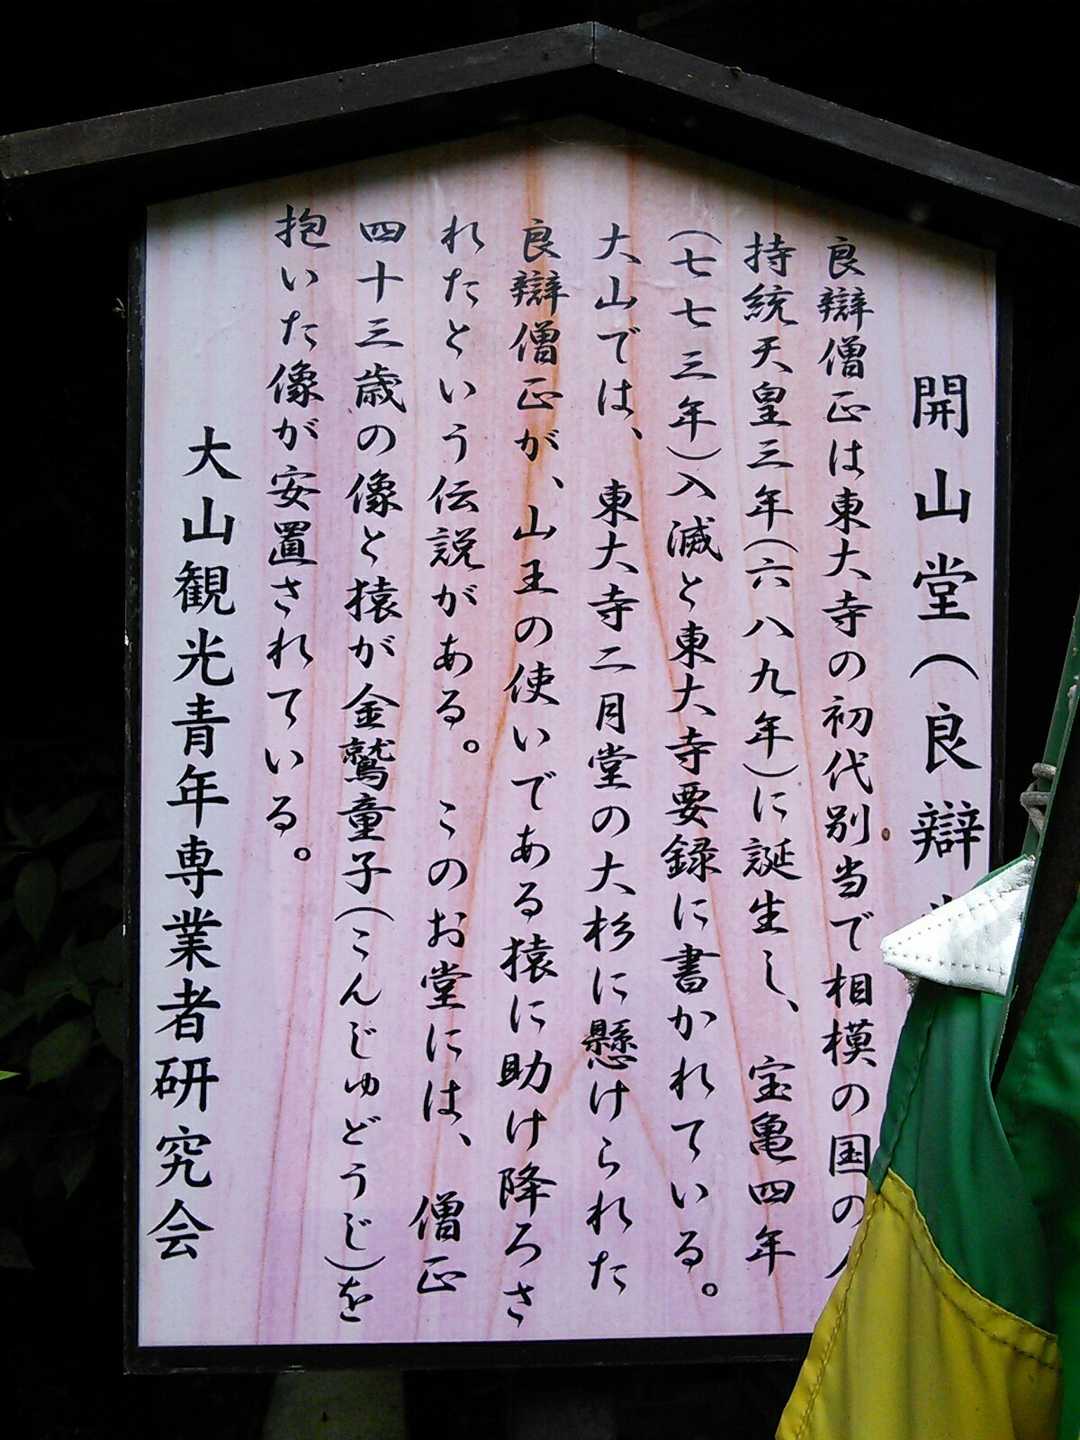 開山堂(良辯
良辯僧正は東大寺の初代別当で相模の国の
持統天皇三年(六八九年)に誕生し、宝亀四年
(七七三年)入滅と東大寺要録に書かれている。
大山では、東大寺二月堂の大杉に懸けられた
良辯僧正が、山王の使いである猿に助け降ろさ
れたという伝説がある。このお堂には、僧正
四十三歳の像と猿が金鷲童子(こんじゅどうじ)を
抱いた像が安置されている。
大山観光青年専業者研究会